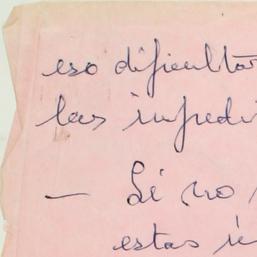 eso dificulta
las impedi
— Si no
estas i